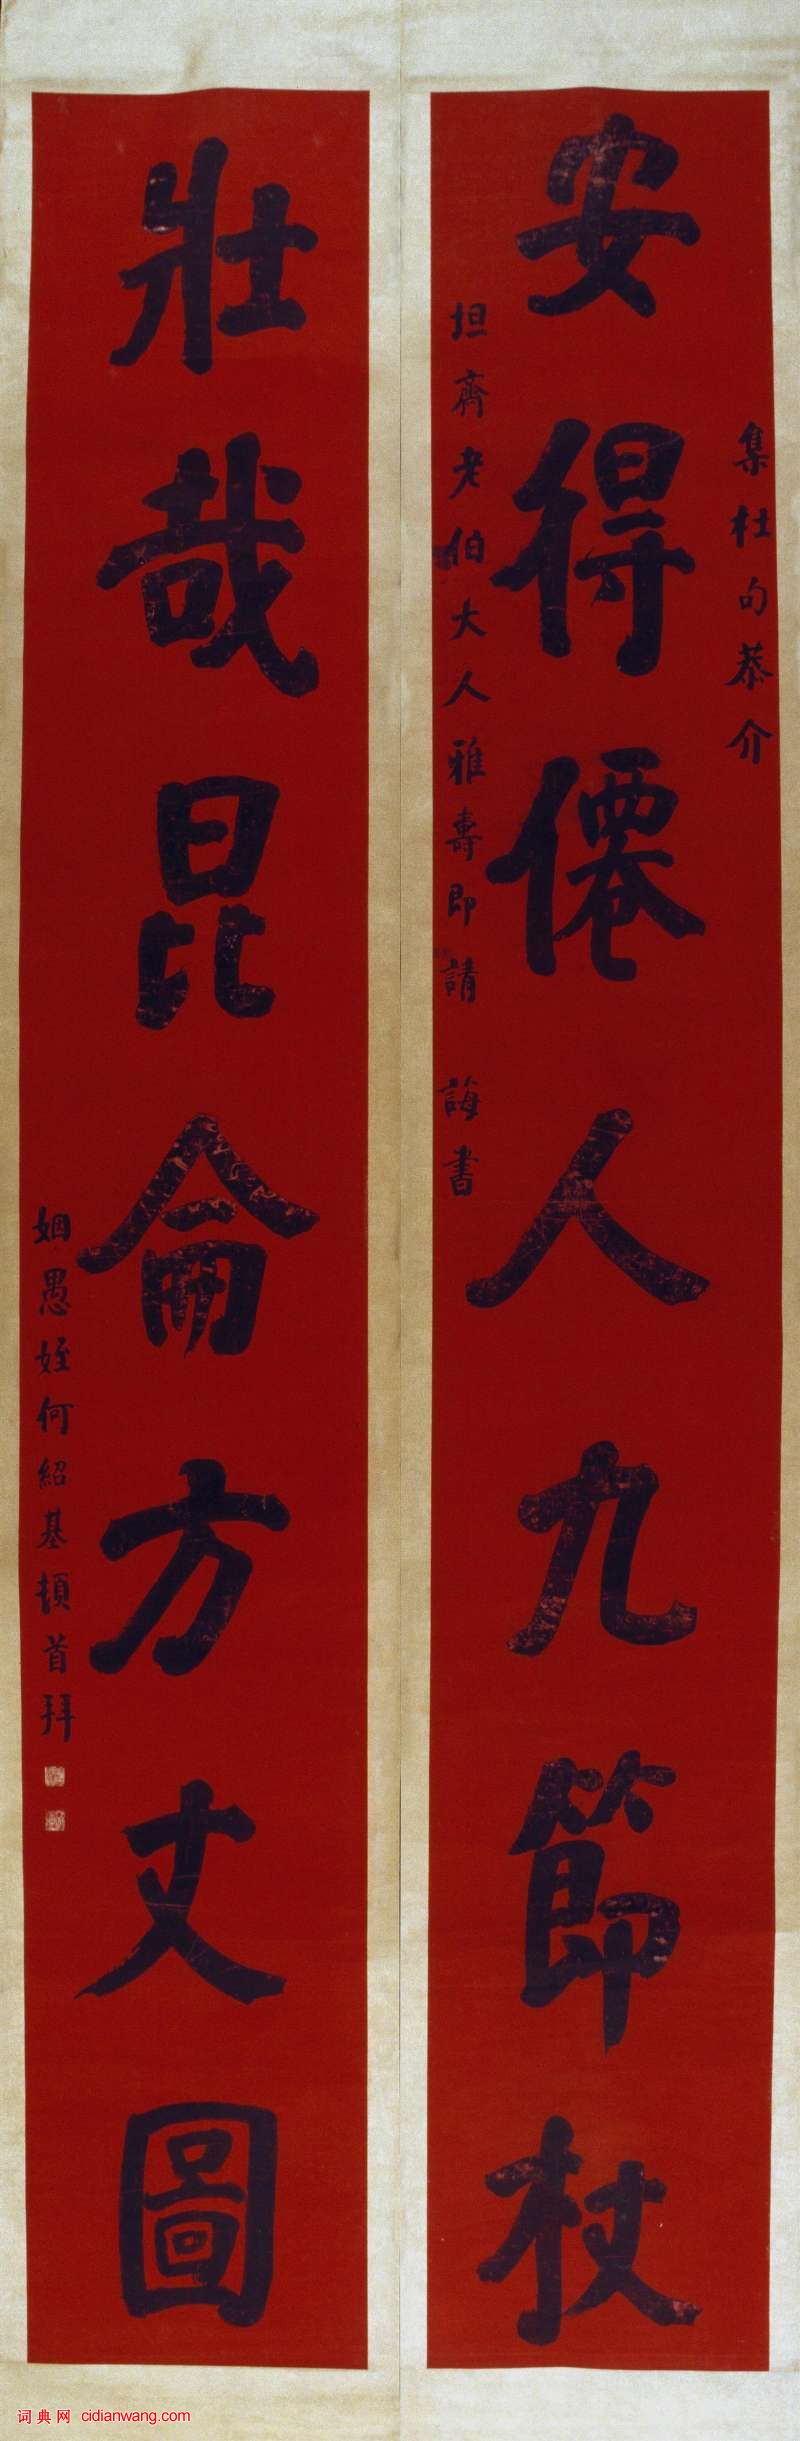 安得僊人九節杖
集杜句恭介
坦齋老伯大人雅壽即請 誨書
壯哉昆侖方丈圖
姻愚姪何紹基頓首拜
词典网 cidianwang.com